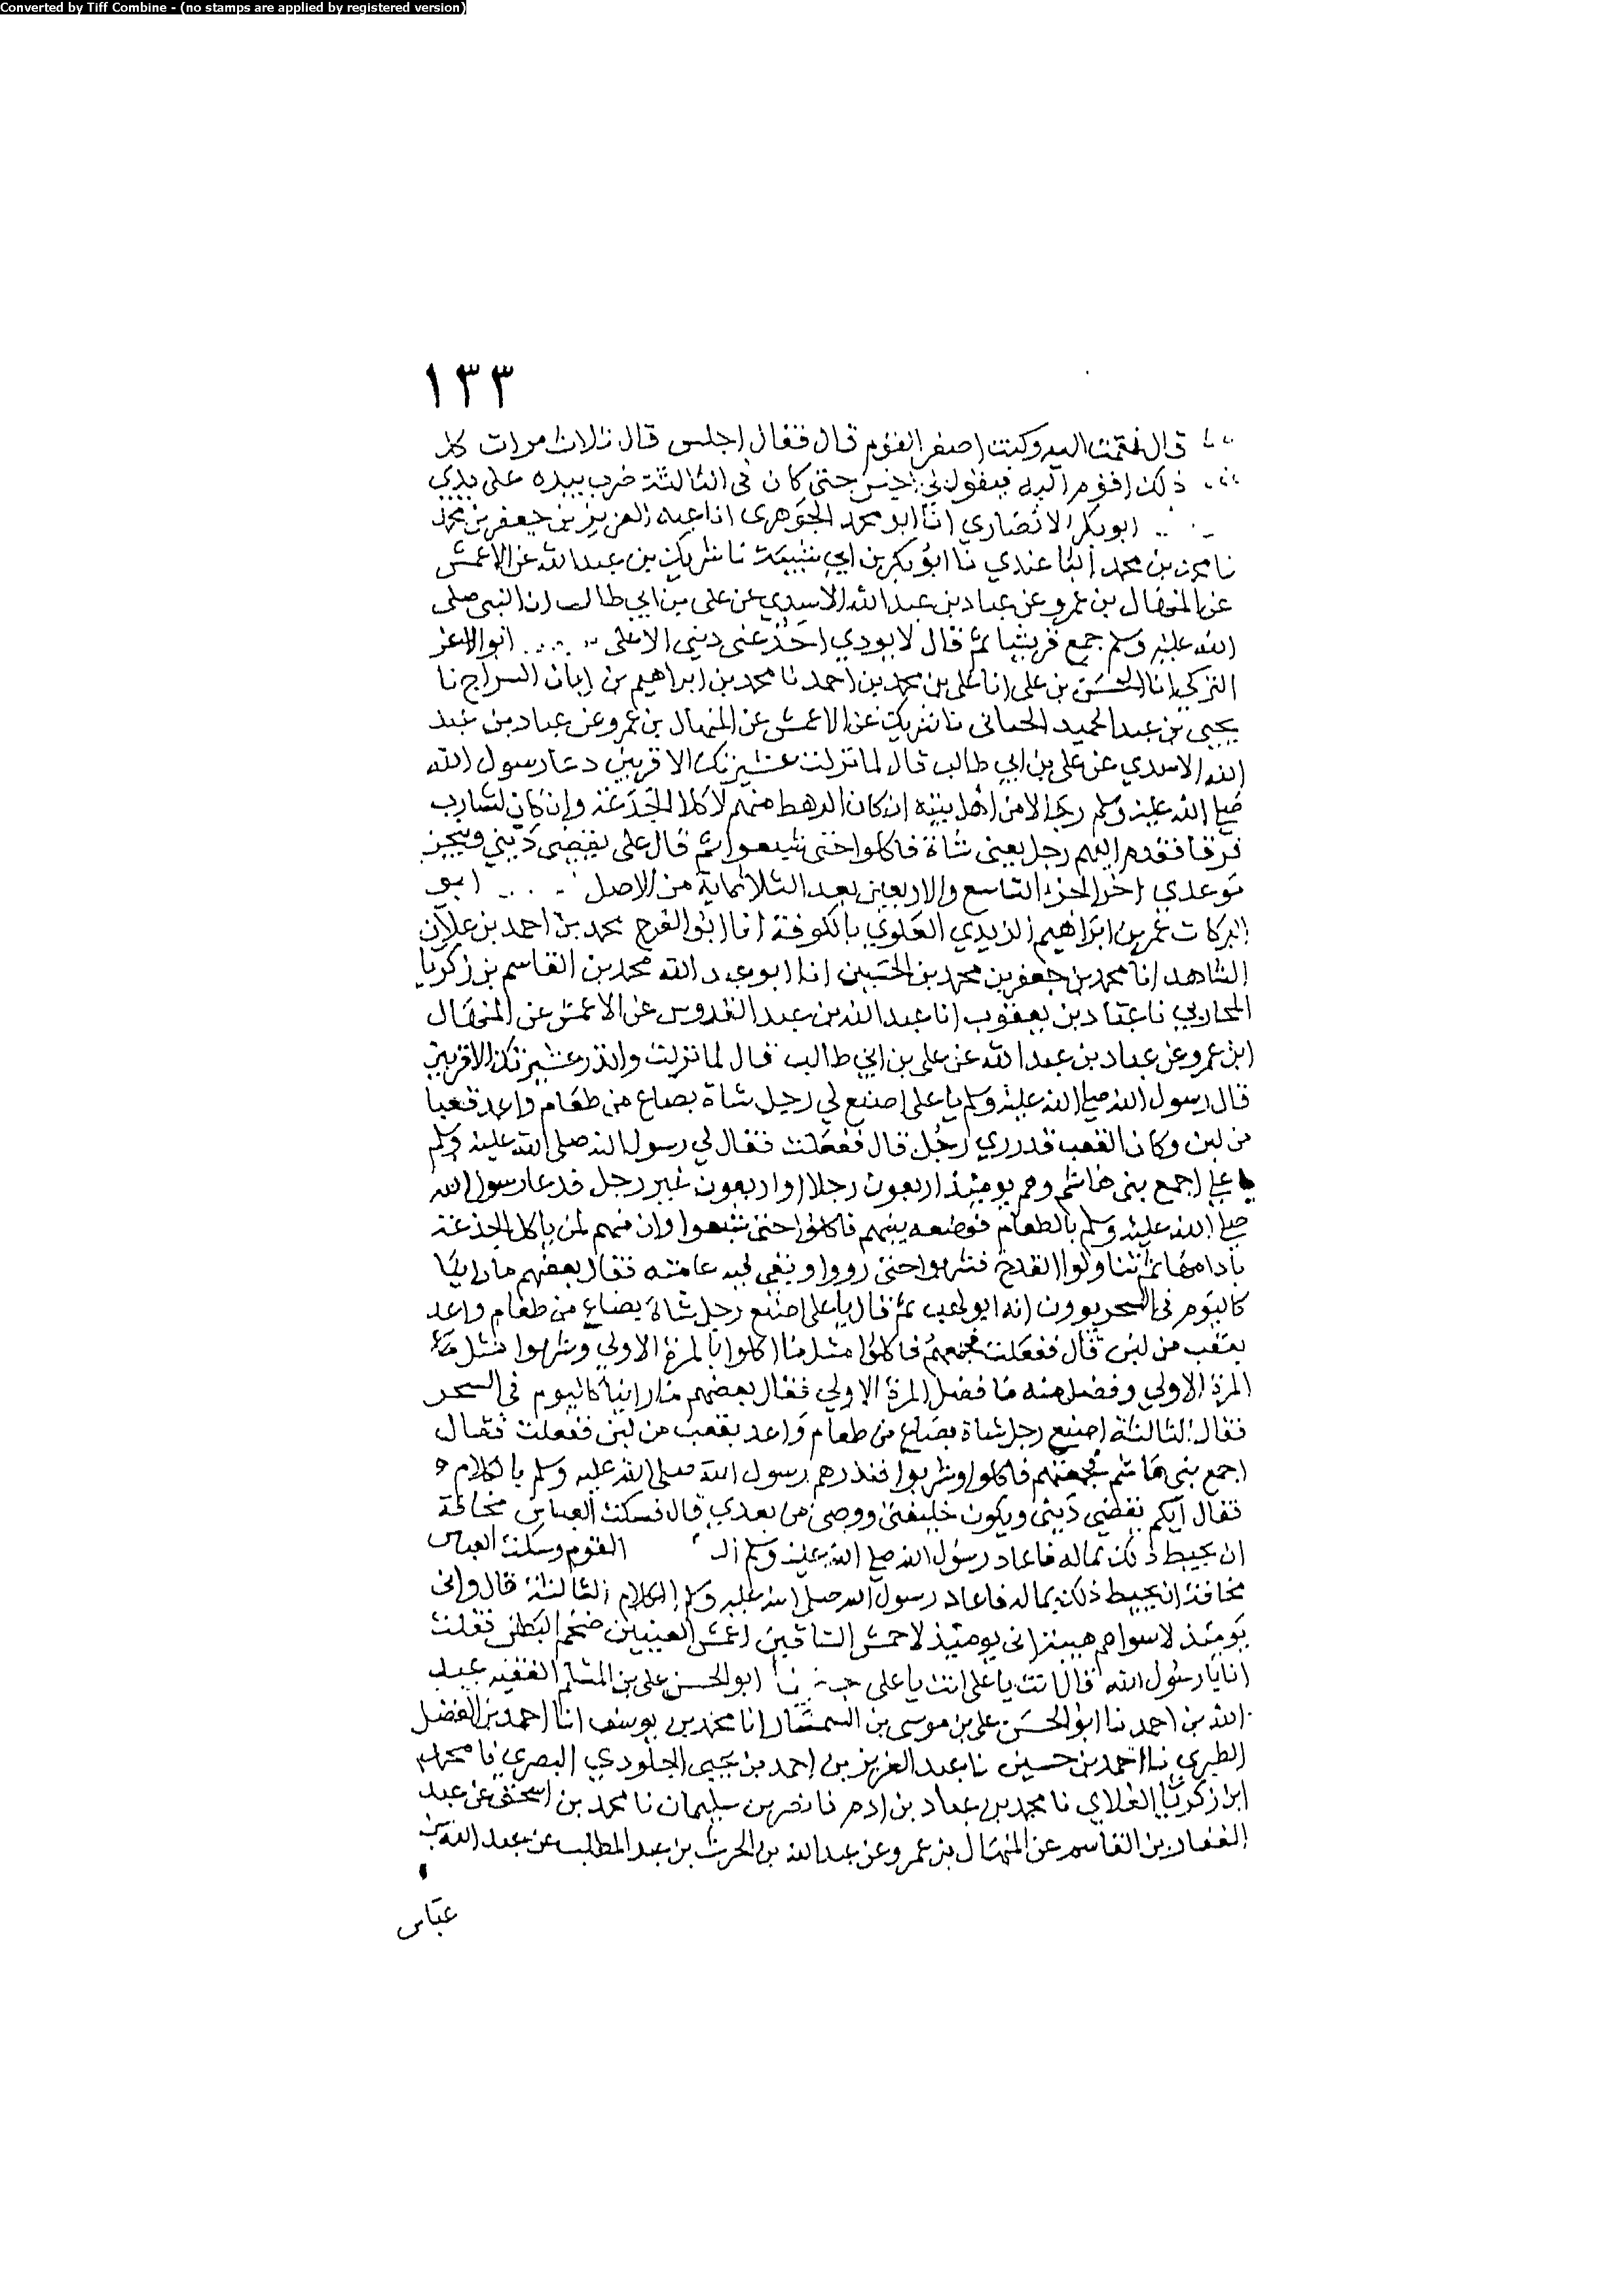 Converted by Tiff Combine - (no stamps are applied by registered version)
١٣٣
قال فقمت اليه وكنت اصغر القوم قال فقال اجلس قال ثلاث مرات كل
ذلك اقوم اليه فيقول لي اجلس حتى كان في الثالثة ضرب بيده على يدي
ابو بكر الانصاري انا ابو محمد الجوهري انا عبد العزيز بن جعفر بن محمد
نا بن محمد الباغندي نا ابو بكر بن ابي شيبة نا شريك بن عبد الله عن الاعمش
عن المنهال بن عمرو عن عباد بن عبد الله الاسدي عن علي بن ابي طالب ان النبي صلى
الله عليه وسلم جمع قريشا ثم قال لا يودي احد عني ديني الا علي ابو الاعز
التركي انا الحسن بن علي انا علي بن محمد بن احمد نا محمد بن ابراهيم بن ابان السراج نا
يحيى بن عبد الحميد الحماني نا شريك عن الاعمش عن المنهال بن عمرو عن عباد بن عبد
الله الاسدي عن علي بن ابي طالب قال لما نزلت عشيرتك الاقربين دعا رسول الله
صلى الله عليه وسلم رجالا من اهل بيته ان كان الرهط منهم لاكلا الجذعة وان كان لشارب
فرقا فقدم اليهم رجل يعني شاة فاكلوا حتى شبعوا ثم قال علي يقضي ديني وينجز
موعدي اخر الجزء التاسع والاربعين بعد الثلاثماية من الاصل ابو
البركات عمر بن ابراهيم الزيدي العلوي بالكوفة انا ابو الفرج محمد بن احمد بن علان
الشاهد انا محمد بن جعفر بن محمد بن الحسين انا ابو عبد الله محمد بن القاسم بن زكريا
المحاربي نا عباد بن يعقوب انا عبد الله بن عبد القدوس عن الاعمش عن المنهال
ابن عمرو عن عباد بن عبد الله عن علي بن ابي طالب قال لما نزلت وانذر عشيرتك الاقربين
قال رسول الله صلى الله عليه وسلم يا علي اصنع لي رجل شاة بصاع من طعام واعد قعبا
من لبن وكان القعب قدر ري رجل قال ففعلت فقال لي رسول الله صلى الله عليه وسلم
يا علي اجمع بني هاشم وهم يوميذ اربعون رجلا او اربعون غير رجل فدعا رسول الله
صلى الله عليه وسلم بالطعام فوضعه بينهم فاكلوا حتى شبعوا وان منهم لمن ياكل الجذعة
بادامها ثم تناولوا القدح فشربوا حتى رووا وبقي فيه عامته فقال بعضهم ما راينا
كاليوم في السحر يرون انه ابو لهب ثم قال يا علي اصنع رجل شاة بصاع من طعام واعد
بقعب من لبن قال ففعلت فجمعتهم فاكلوا مثل ما اكلوا بالمرة الاولي وشربوا مثل
المرة الاولي وفضل منه ما فضل المرة الاولي فقال بعضهم ما راينا كاليوم في السحر
فقال الثالثة اصنع رجل شاة بصاع من طعام واعد بقعب من لبن ففعلت فقال
اجمع بني هاشم فجمعتهم فاكلوا وشربوا فبدرهم رسول الله صلى الله عليه وسلم بالكلام
فقال ايكم يقضي ديني ويكون خليفتي ووصي من بعدي قال فسكت العباس مخافة
ان يحيط ذلك بماله فاعاد رسول الله صلى الله عليه وسلم القوم وسكت العباس
مخافة ان يحيط ذلك بماله فاعاد رسول الله صلى الله عليه وسلم الكلام الثالثة قال واني
يوميذ لاسواهم هيئة اني يوميذ لاحمش الساقين اعمش العينين ضخم البطن فقلت
انا يا رسول الله قال انت يا علي انت يا علي ابو الحسن علي بن المسلم الفقيه عبد
الله بن احمد نا ابو الحسن علي بن موسى بن السمسار انا محمد بن يوسف انا احمد بن الفضل
الطبري نا احمد بن حسين نا عبد العزيز بن احمد بن يحيى الجلودي البصري نا محمد
ابن زكريا الغلابي نا محمد بن عباد بن ادم نا نصر بن سليمان نا محمد بن اسحق عن عبد
الغفار بن القاسم عن المنهال بن عمرو عن عبد الله بن الحرث بن عبد المطلب عن عبد الله بن
عباس